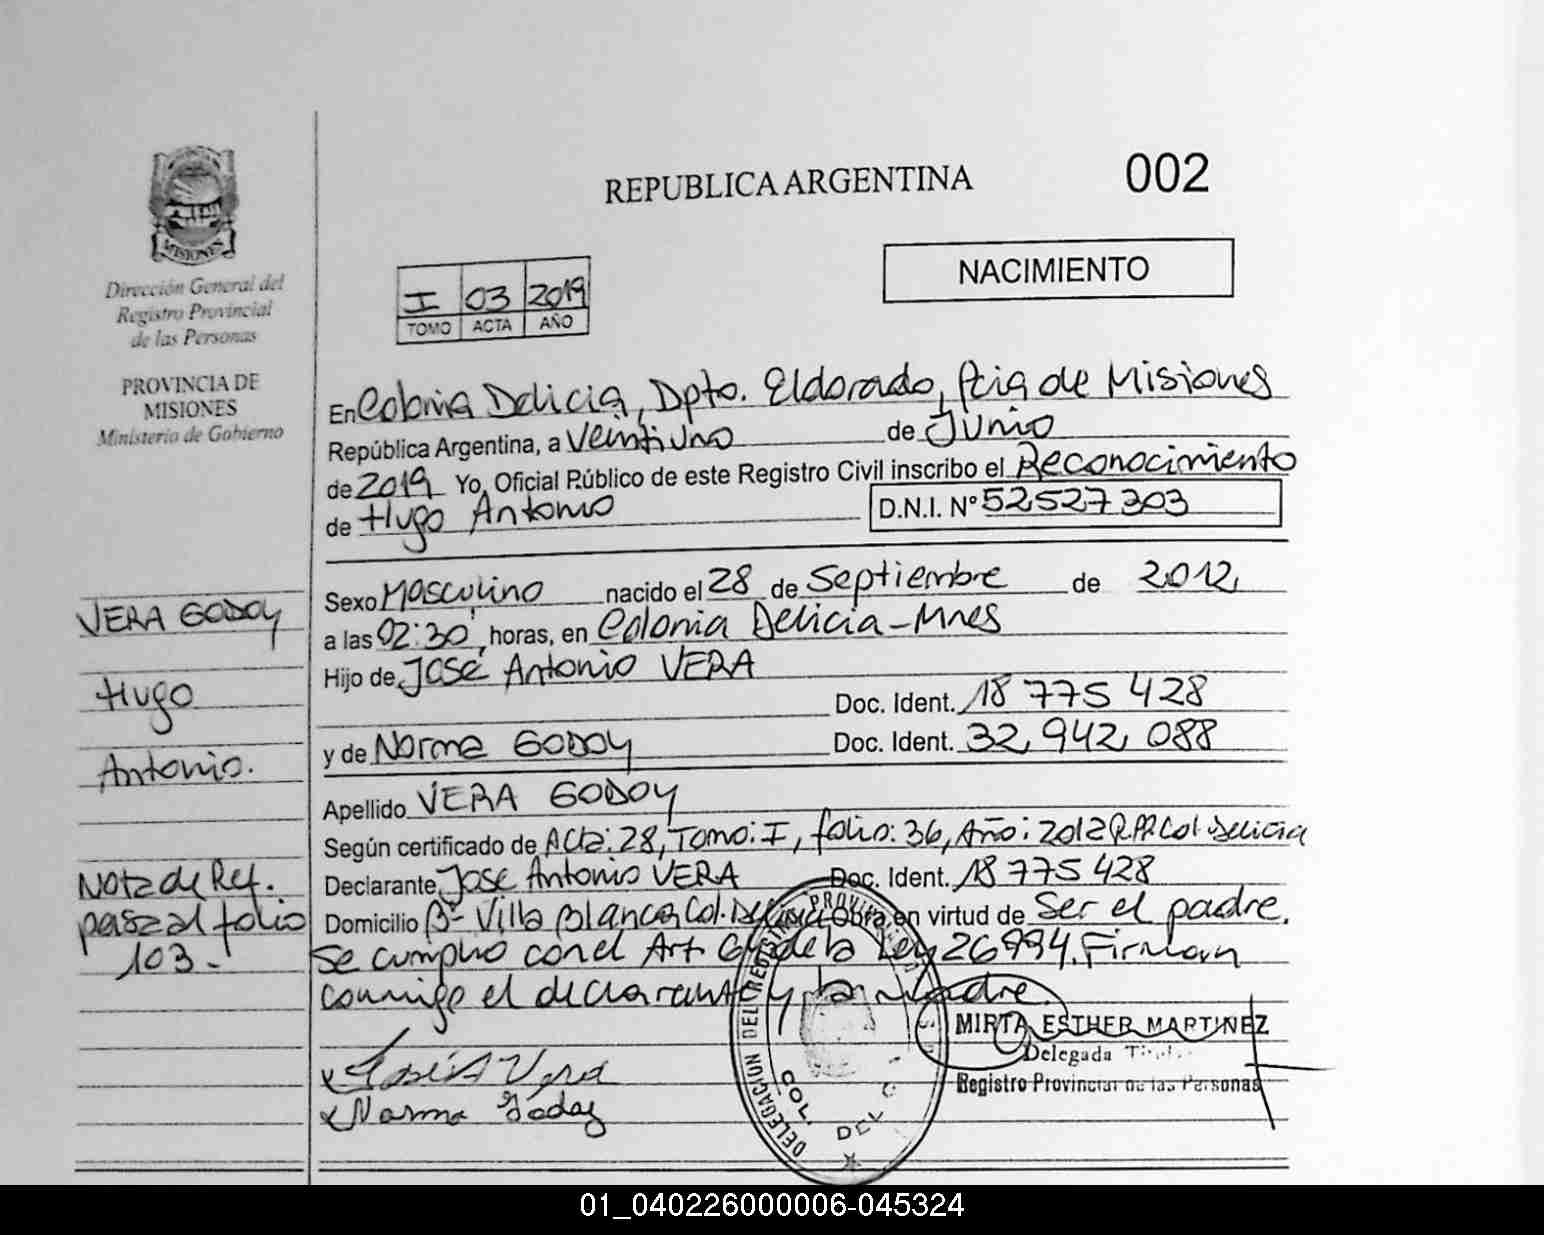 REPUBLICA ARGENTINA
002
MISIONES
Dirección General del
Registro Provincial
de las Personas
PROVINCIA DE
MISIONES
Ministerio de Gobierno
NACIMIENTO
I 03 2019
TOMO ACTA AÑO
En Colonia Delicia, Dpto. Eldorado, Pcia de Misiones
República Argentina, a Veintiuno de Junio
de 2019 Yo, Oficial Público de este Registro Civil inscribo el Reconocimiento
de Hugo Antonio D.N.I. N° 52.527.303
Sexo Masculino nacido el 28 de Septiembre de 2.012,
a las 02:30 horas, en Colonia Delicia - Mnes
Hijo de José Antonio VERA
Doc. Ident. 18 775 428
y de Norma GODOY Doc. Ident. 32.942.088
Apellido VERA GODOY
Según certificado de Acta: 28, Tomo: I, folio: 36, Año: 2012 R.P.P. Col. Delicia
Declarante José Antonio VERA Doc. Ident. 18 775 428
Domicilio B° Villa Blanca, Col. Delicia Obra en virtud de Ser el padre.
Se cumplio con el Art. de la Ley 26994. Firman
conmigo el declarante y la Madre.
VERA GODOY
Hugo
Antonio.
Nota de Ref.
pasa al folio
103.-
José A Vera
Norma Godoy
DELEGACION DEL REGISTRO PROVINCIAL
COL. DEL
MIRTA ESTHER MARTINEZ
Delegada
Registro Provincial de las Personas
01_040226000006-045324